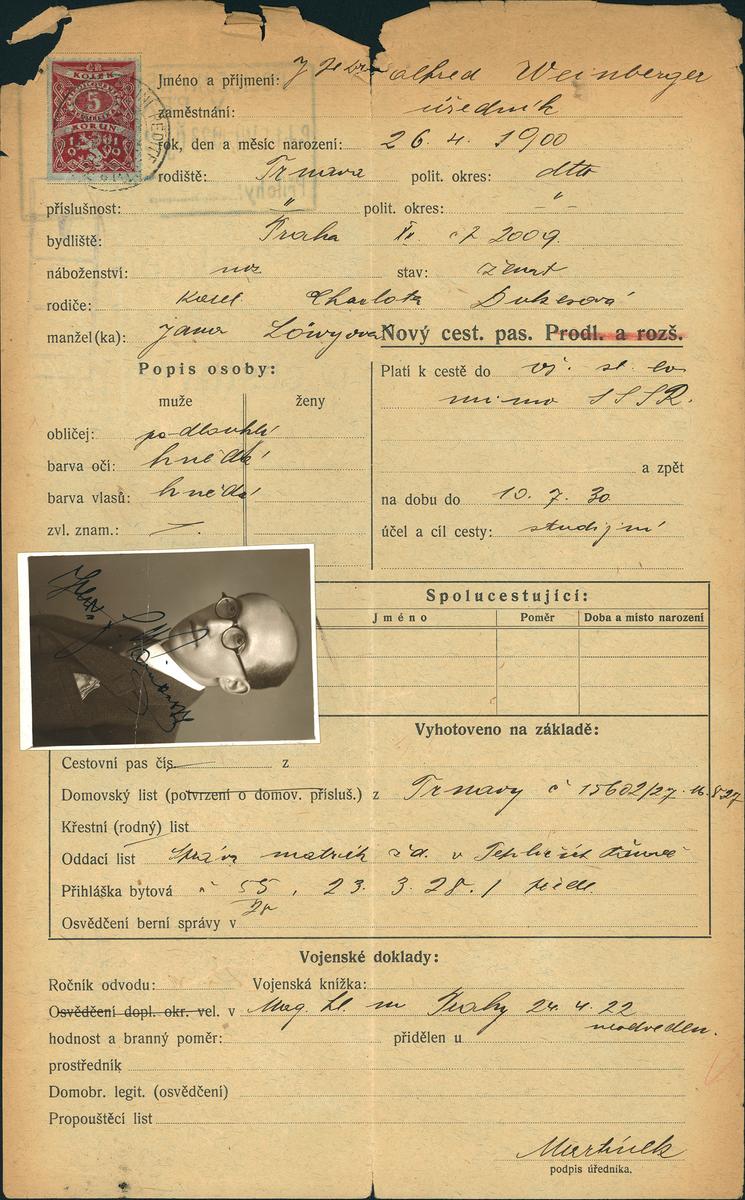 ČR
KOLEK
5
KORUN
Jméno a příjmení: Alfred Weinberger
zaměstnání: úředník
rok, den a měsíc narození: 26. 4. 1900
rodiště: Trnava polit. okres: dtto
příslušnost: " polit. okres: -"-
bydliště: Praha XII čp 2009
náboženství: moz stav: ženat
rodiče: Karel Charlota Dukesová
manžel(ka): Jana Löwyová
Nový cest. pas. Prodl. a rozš.
Popis osoby:
muže ženy
obličej: podlouhlý
barva očí: hnědá
barva vlasů: hnědá
zvl. znam.: —.
Platí k cestě do vš. st. ev
mimo SSSR.
a zpět
na dobu do 10. 7. 30
účel a cíl cesty: studijní
Spolucestující:
Jméno Poměr Doba a místo narození
Vyhotoveno na základě:
Cestovní pas čís. z
Domovský list (potvrzení o domov. přísluš.) z Trnavy č 15602/27
Křestní (rodný) list
Oddací list Správa matrik žid. v Teplicích Šanově
Přihláška bytová č 55/28, 23. 3. 28.
Osvědčení berní správy v
Vojenské doklady:
Ročník odvodu: Vojenská kniha:
Osvědčení dopl. okr. vel. v Mag. hl. m Prahy 24. 4. 22
neodveden.
hodnost a branný poměr: přidělen u
prostředník
Domobr. legit. (osvědčení)
Propouštěcí list
Martínek
podpis úředníka.